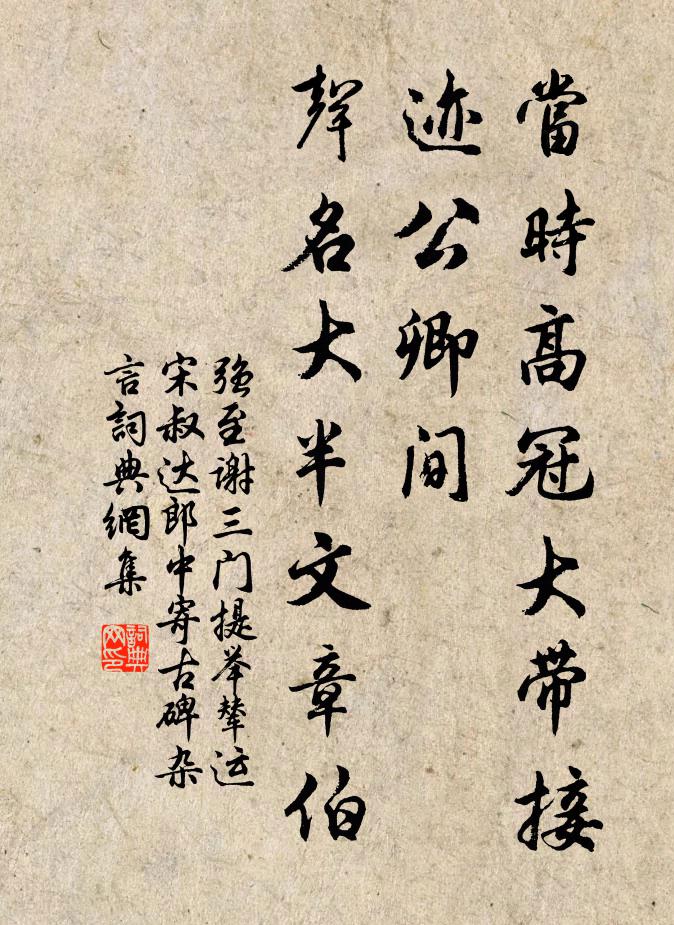 當時高冠大带接
迹公卿間
聲名大半文章伯
强至谢三门提举辇运
宋叔达郎中寄古碑杂
言詞典網集
詞典
网印